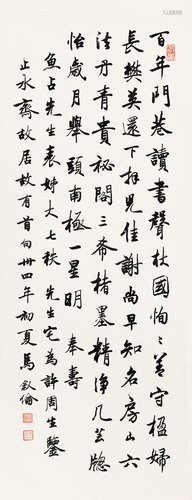 百年門巷讀書聲杜國恂〻善守楹婦
長樊英還下拜兒佳謝尚早知名房山六
法丹青貴秘閣三希楮墨精淨几芸牕
怡歲月舉頭南極一星明 奉壽
魚占先生袁姊大七秩 先生宅為許周生鑒
止水齋故居故有首句卅四年初夏馬叙倫